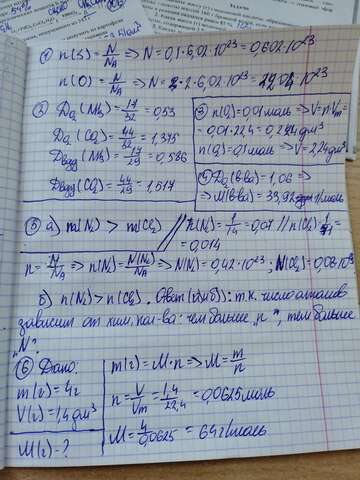 ① n(S) = N/NA => N = 0,1·6,02·10²³ = 0,602·10²³
n(O) = N/NA => N = 2·6,02·10²³ = 12,04·10²³
② DO₂(NH₃) = 17/32 = 0,53
DO₂(CO₂) = 44/32 = 1,375
Dвозд(NH₃) = 17/29 = 0,586
Dвозд(CO₂) = 44/29 = 1,517
③ n(O₂) = 0,01 моль => V = n·Vm =
= 0,01·22,4 = 0,224 дм³
n(O₂) = 0,1 моль => V = 2,24 дм³
④ DO₂(в-ва) = 1,06 =>
=> M(в-ва) = 33,92 г/моль
⑤ а) m(N₂) > m(Cl₂) // n(N₂) = 1/14 = 0,07 // n(Cl₂) = 1/71 =
= 0,014
n = N/NA => n(N₂) = N(N₂)/NA => N(N₂) = 0,42·10²³; N(Cl₂) = 0,08·10²³
б) n(N₂) > n(Cl₂). Ответ (а и б): т.к. число атомов
зависит от хим. кол-ва: чем больше "n", тем больше
"N"
⑥ Дано:
m(г) = 4г
V(г) = 1,4 дм³
M(г) - ?
m(г) = M·n => M = m/n
n = V/Vm = 1,4/22,4 = 0,0625 моль
M = 4/0,0625 = 64 г/моль